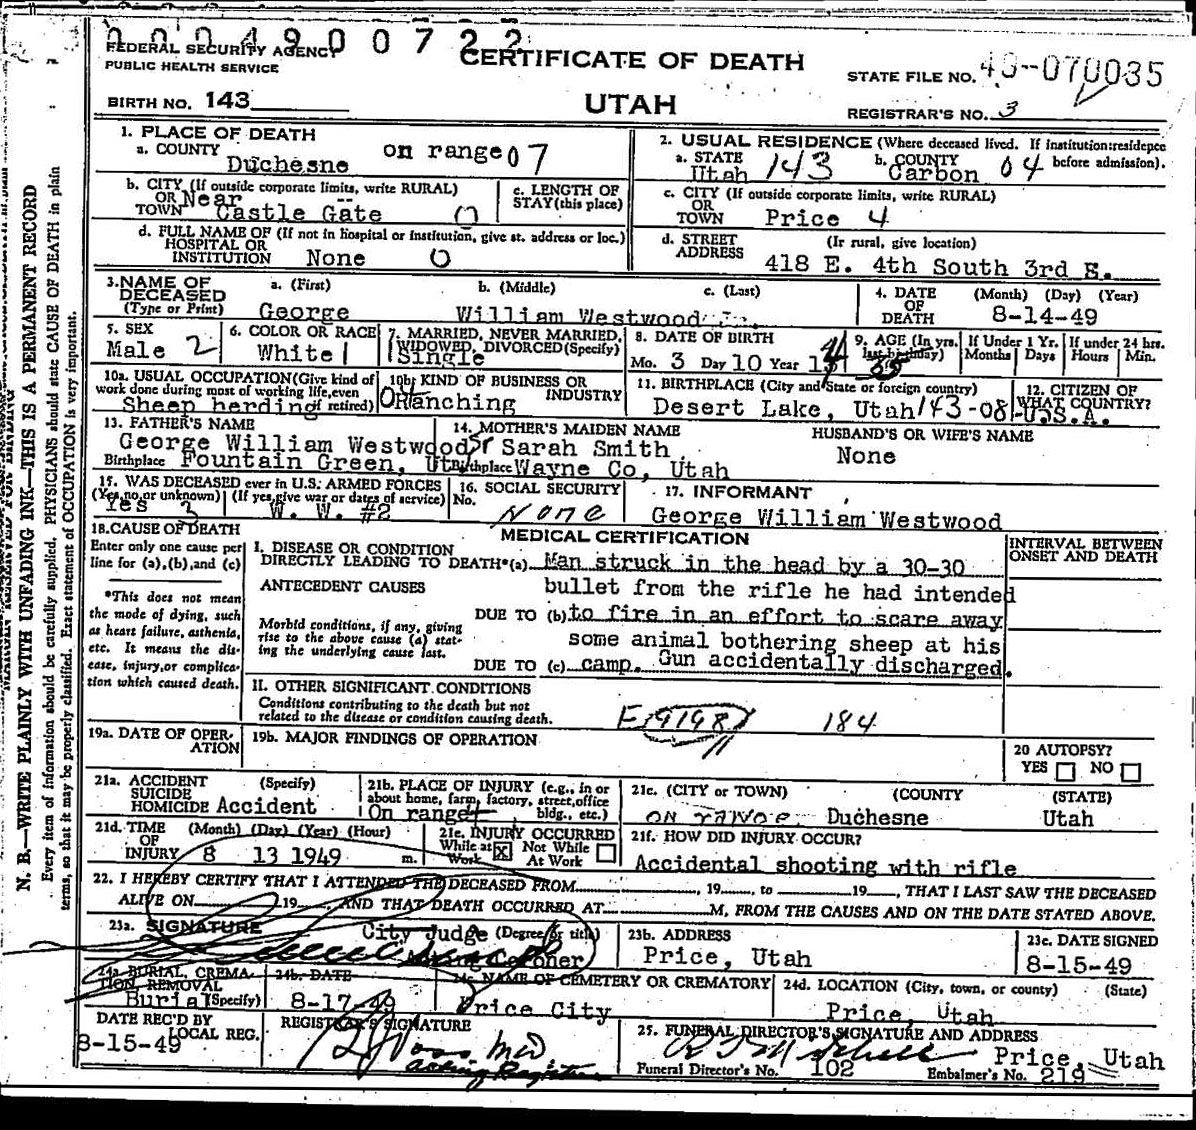 0004900722
FEDERAL SECURITY AGENCY
PUBLIC HEALTH SERVICE
CERTIFICATE OF DEATH
STATE FILE NO. 49-070035
BIRTH NO. 143
UTAH
REGISTRAR'S NO. 3
N. B.—WRITE PLAINLY WITH UNFADING INK—THIS IS A PERMANENT RECORD
Every item of information should be carefully supplied. PHYSICIANS should state CAUSE OF DEATH in plain
terms, so that it may be properly classified. Exact statement of OCCUPATION is very important.
1. PLACE OF DEATH
a. COUNTY Duchesne on range 07
2. USUAL RESIDENCE (Where deceased lived. If institution: residence before admission).
a. STATE Utah 143 b. COUNTY Carbon 04
b. CITY (If outside corporate limits, write RURAL)
OR TOWN Near Castle Gate 0
c. LENGTH OF STAY (this place) --
c. CITY (If outside corporate limits, write RURAL)
OR TOWN Price 4
d. FULL NAME OF (If not in hospital or institution, give st. address or loc.)
HOSPITAL OR INSTITUTION None 0
d. STREET ADDRESS (If rural, give location)
418 E. 4th South 3rd E.
3. NAME OF DECEASED (Type or Print)
a. (First) b. (Middle) c. (Last)
George William Westwood Jr.
4. DATE OF DEATH (Month) (Day) (Year)
8-14-49
5. SEX
Male 2
6. COLOR OR RACE
White 1
7. MARRIED, NEVER MARRIED, WIDOWED, DIVORCED (Specify)
Single
8. DATE OF BIRTH
Mo. 3 Day 10 Year 14
9. AGE (In yrs. last birthday)
35
If Under 1 Yr. Months Days
If under 24 hrs. Hours Min.
10a. USUAL OCCUPATION (Give kind of work done during most of working life, even if retired)
Sheep herding
10b. KIND OF BUSINESS OR INDUSTRY
Ranching
11. BIRTHPLACE (City and State or foreign country)
Desert Lake, Utah 143-08
12. CITIZEN OF WHAT COUNTRY?
U.S.A.
13. FATHER'S NAME
George William Westwood Sr
Birthplace Fountain Green, Ut
14. MOTHER'S MAIDEN NAME
Sarah Smith
Birthplace Wayne Co, Utah
HUSBAND'S OR WIFE'S NAME
None
15. WAS DECEASED ever in U.S. ARMED FORCES
(Yes, no, or unknown) (If yes, give war or dates of service)
Yes 3 W. W. #2
16. SOCIAL SECURITY No.
None
17. INFORMANT
George William Westwood
18. CAUSE OF DEATH
Enter only one cause per line for (a), (b), and (c)
*This does not mean the mode of dying, such as heart failure, asthenia, etc. It means the disease, injury, or complication which caused death.
MEDICAL CERTIFICATION
INTERVAL BETWEEN ONSET AND DEATH
I. DISEASE OR CONDITION
DIRECTLY LEADING TO DEATH*(a) Man struck in the head by a 30-30
ANTECEDENT CAUSES bullet from the rifle he had intended
DUE TO (b) to fire in an effort to scare away
Morbid conditions, if any, giving rise to the above cause (a) stating the underlying cause last.
some animal bothering sheep at his
DUE TO (c) camp. Gun accidentally discharged.
II. OTHER SIGNIFICANT CONDITIONS
Conditions contributing to the death but not related to the disease or condition causing death.
E9198 184
19a. DATE OF OPERATION
19b. MAJOR FINDINGS OF OPERATION
20 AUTOPSY?
YES NO
21a. ACCIDENT SUICIDE HOMICIDE (Specify)
Accident
21b. PLACE OF INJURY (e.g., in or about home, farm, factory, street, office bldg., etc.)
On range
21c. (CITY or TOWN) (COUNTY) (STATE)
on range Duchesne Utah
21d. TIME OF INJURY (Month) (Day) (Year) (Hour)
8 13 1949 m.
21e. INJURY OCCURRED
While at Work X Not While At Work
21f. HOW DID INJURY OCCUR?
Accidental shooting with rifle
22. I HEREBY CERTIFY THAT I ATTENDED THE DECEASED FROM , 19 , to 19 , THAT I LAST SAW THE DECEASED
ALIVE ON , 19 , AND THAT DEATH OCCURRED AT M, FROM THE CAUSES AND ON THE DATE STATED ABOVE.
23a. SIGNATURE City Judge (Degree or title)
Coroner
23b. ADDRESS
Price, Utah
23c. DATE SIGNED
8-15-49
24a. BURIAL, CREMATION, REMOVAL (Specify)
Burial
24b. DATE
8-17-49
24c. NAME OF CEMETERY OR CREMATORY
Price City
24d. LOCATION (City, town, or county) (State)
Price, Utah
DATE REC'D BY LOCAL REG.
8-15-49
REGISTRAR'S SIGNATURE
Acting Registrar
25. FUNERAL DIRECTOR'S SIGNATURE AND ADDRESS
Price, Utah
Funeral Director's No. 102 Embalmer's No. 219